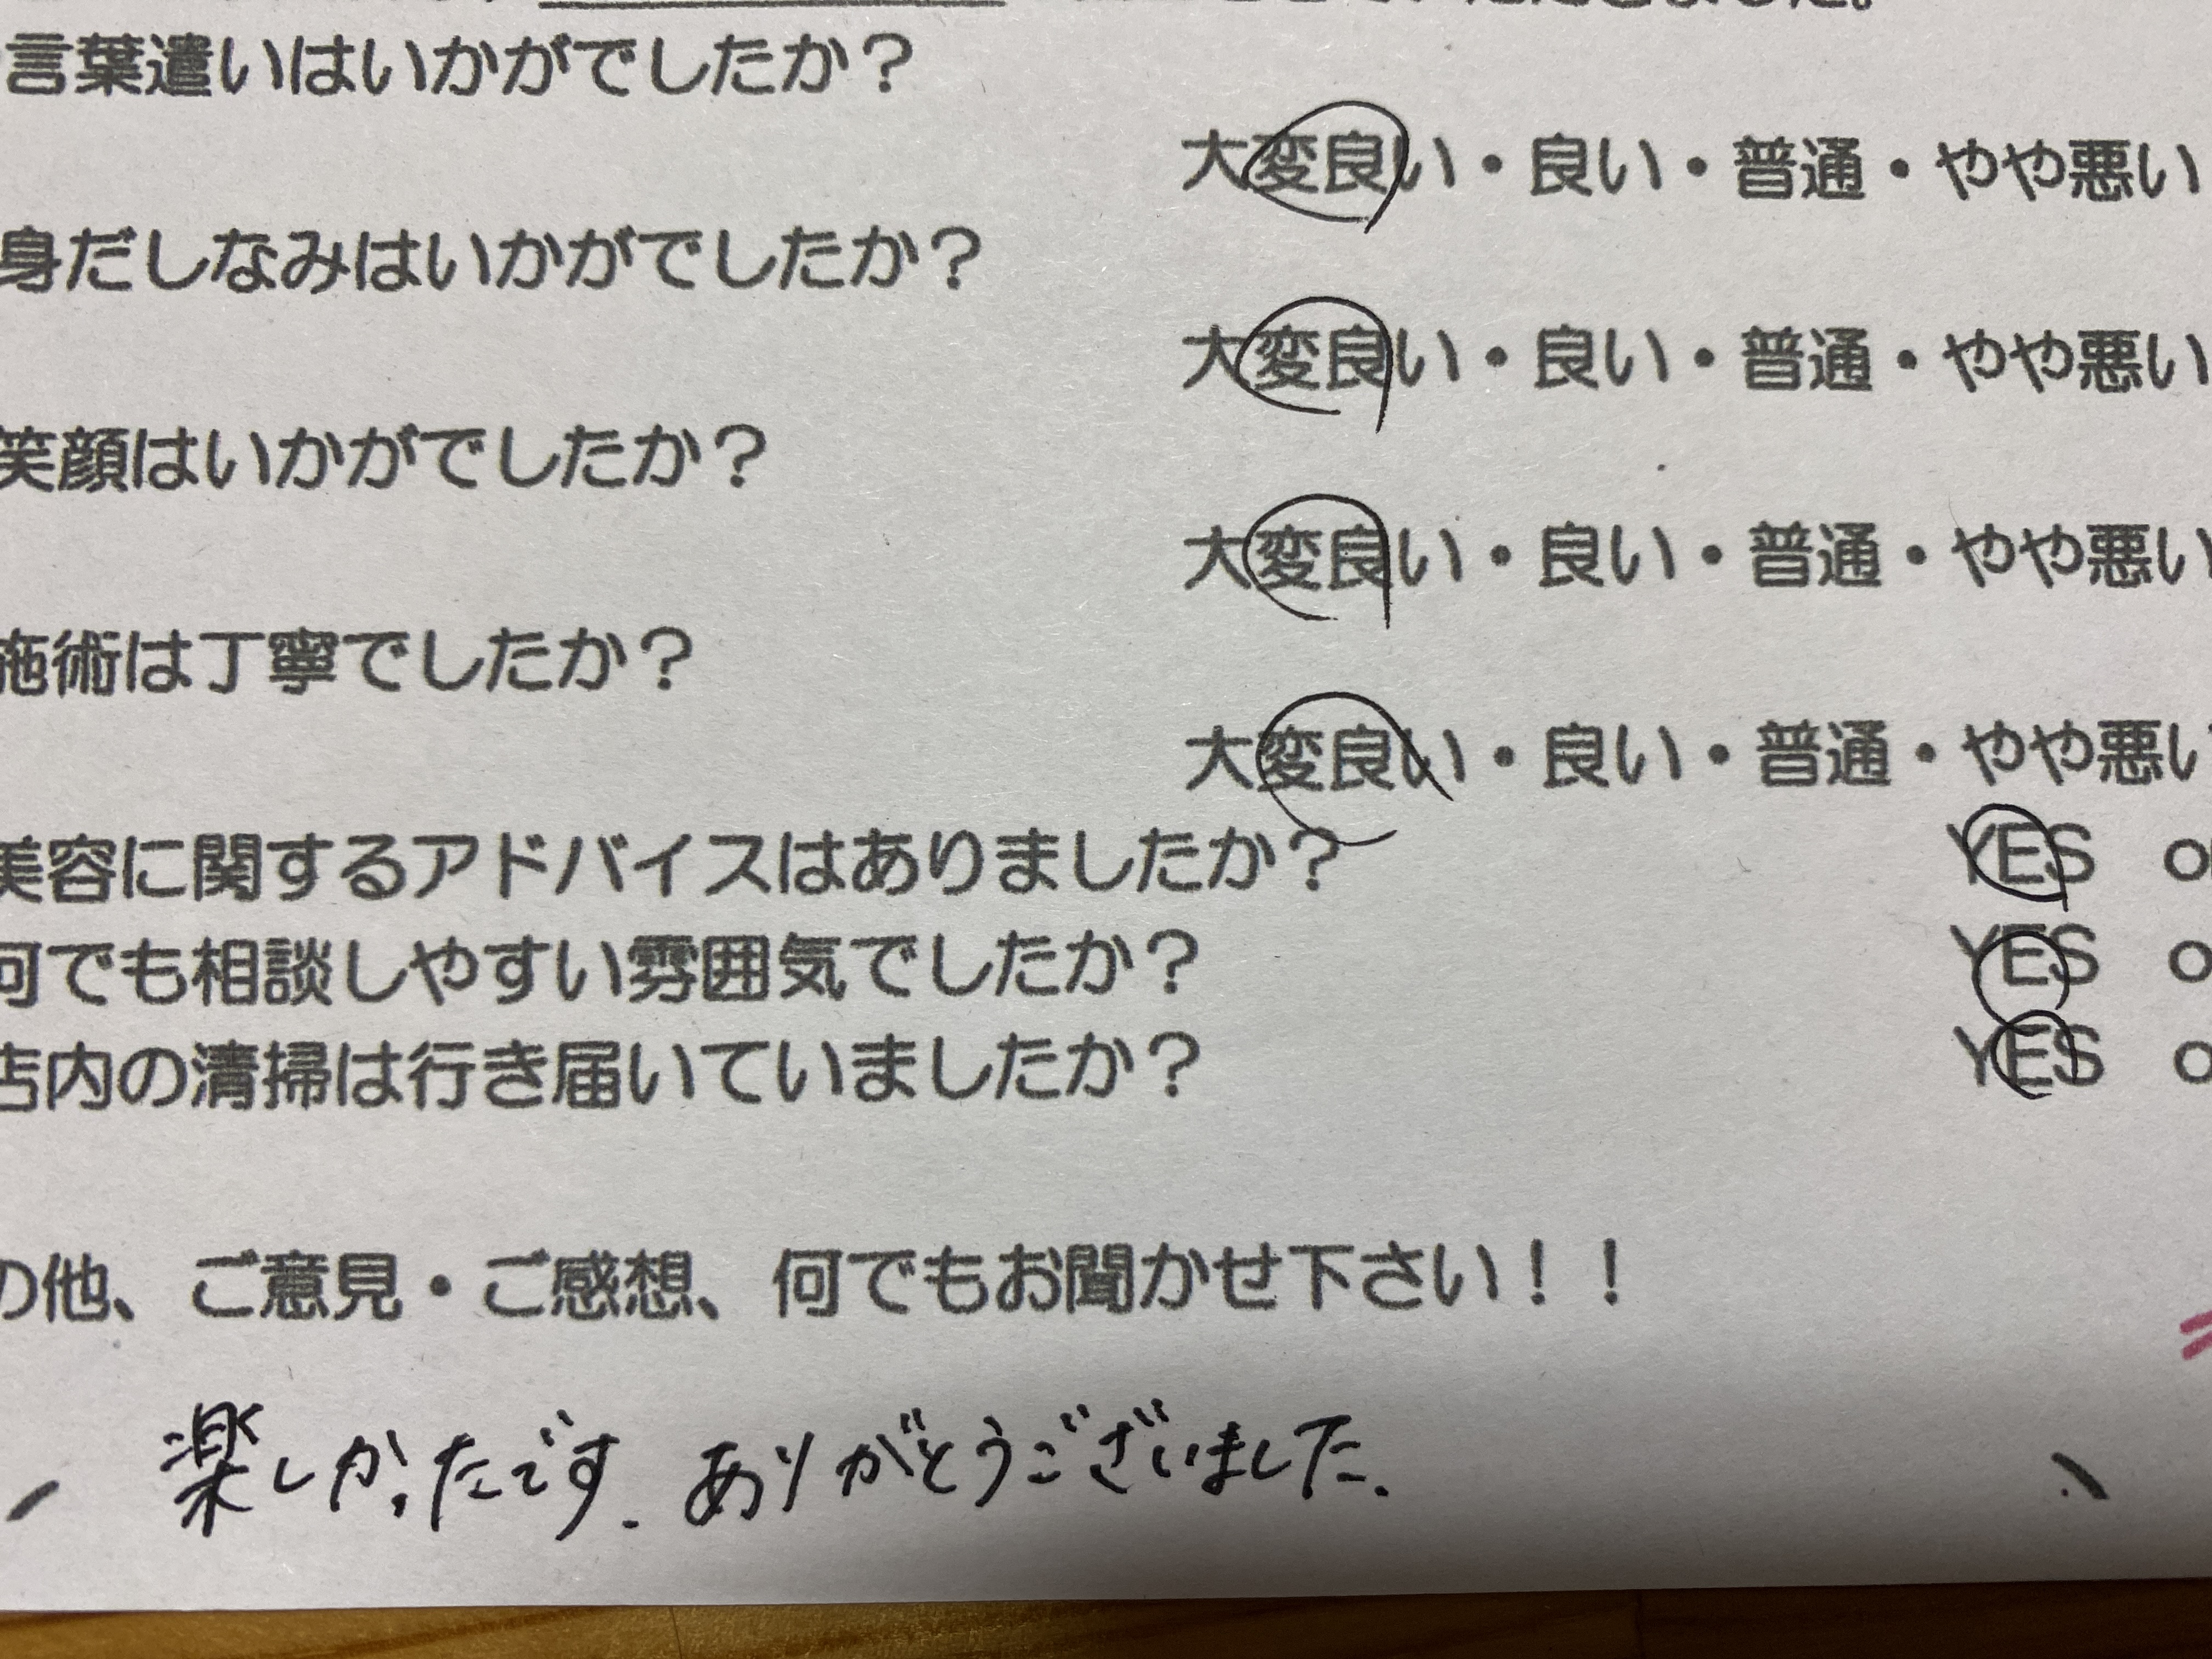 言葉遣いはいかがでしたか？
大変良い・良い・普通・やや悪い
身だしなみはいかがでしたか？
大変良い・良い・普通・やや悪い
笑顔はいかがでしたか？
大変良い・良い・普通・やや悪い
施術は丁寧でしたか？
大変良い・良い・普通・やや悪い
美容に関するアドバイスはありましたか？ YES o
何でも相談しやすい雰囲気でしたか？ YES o
店内の清掃は行き届いていましたか？ YES o
の他、ご意見・ご感想、何でもお聞かせ下さい！！
楽しかったです. ありがとうございました.